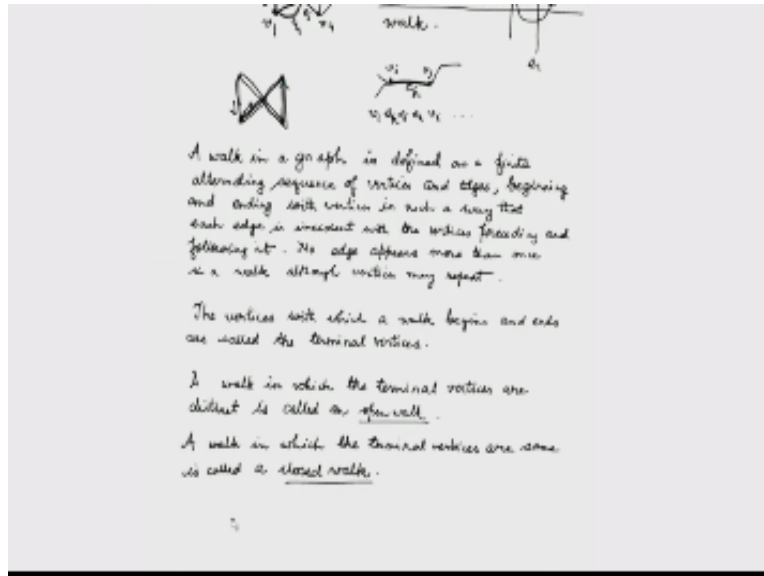 v1 v4 walk.
e1
vi vj
ek
A walk in a graph is defined as a finite
alternating sequence of vertices and edges, beginning
and ending with vertices in such a way that
each edge is incident with the vertices preceding and
following it. No edge appears more than once
in a walk although vertices may repeat.
The vertices with which a walk begins and ends
are called the terminal vertices.
A walk in which the terminal vertices are
distinct is called an open walk.
A walk in which the terminal vertices are same
is called a closed walk.